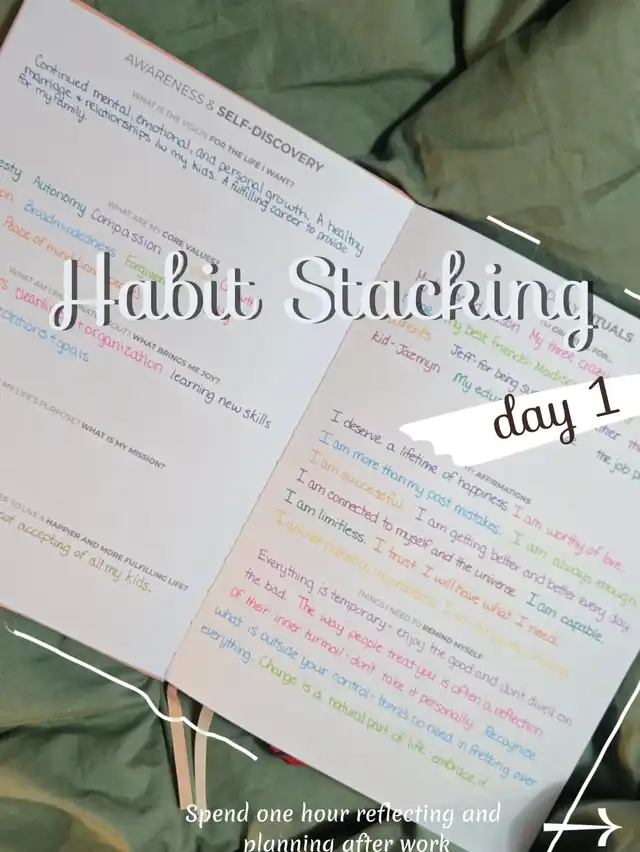 AWARENESS & SELF-DISCOVERY
WHAT IS THE VISION FOR THE LIFE I WANT?
Continued mental, emotional, and personal growth. A healthy
marriage + relationships w my kids. A fulfilling career to provide
for my family.
WHAT ARE MY CORE VALUES?
Autonomy Compassion
Broadmindedness
Peace of mind
WHAT BRINGS ME JOY?
organization learning new skills
goals
MY LIFE'S PURPOSE? WHAT IS MY MISSION?
TO LIVE A HAPPIER AND MORE FULFILLING LIFE?
not accepting of all my kids.
Habit Stacking
day 1
RITUALS
My three crazy
my best friends-
kid-Jazmyn Jeff for being
My
the job
AFFIRMATIONS
I deserve a lifetime of happiness. I am worthy of love.
I am more than my past mistakes. I am always enough.
I am successful. I am getting better and better every day.
I am connected to myself and the universe. I am capable.
I am limitless. I trust I will have what I need.
THINGS I NEED TO REMIND MYSELF
Everything is temporary - enjoy the good and don't dwell on
the bad. The way people treat you is often a reflection
of their inner turmoil - don't take it personally. Recognize
what is outside your control - there's no need in fretting over
everything. Change is a natural part of life - embrace it.
Spend one hour reflecting and
planning after work